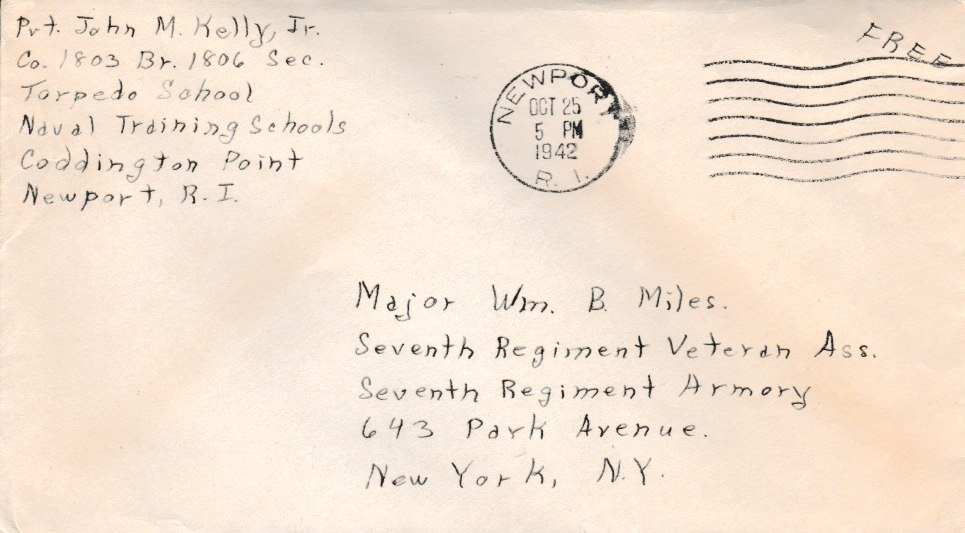 Pvt. John M. Kelly, Jr.
Co. 1803 Br. 1806 Sec.
Torpedo School
Naval Training Schools
Coddington Point
Newport, R.I.
NEWPORT
OCT 25
5 PM
1942
R. I.
FREE
Major Wm. B. Miles.
Seventh Regiment Veteran Ass.
Seventh Regiment Armory
643 Park Avenue.
New York, N.Y.